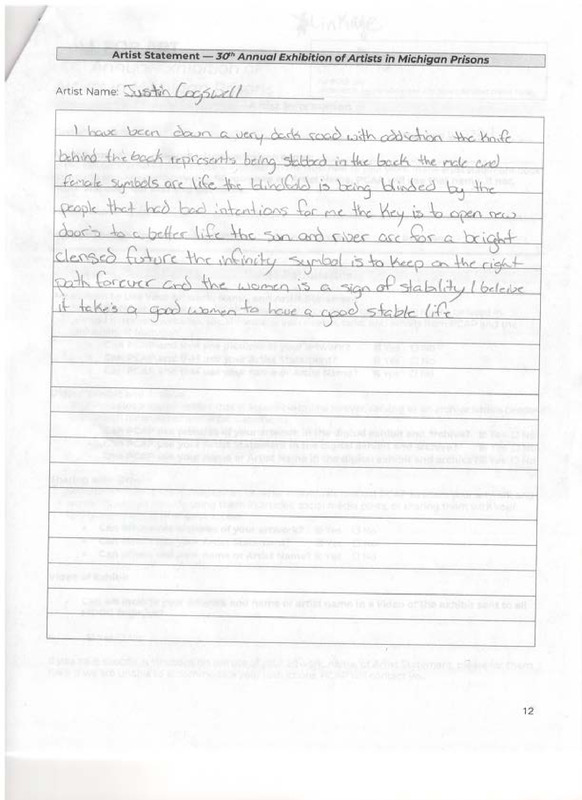 Linkage
Artist Statement — 30th Annual Exhibition of Artists in Michigan Prisons
Artist Name: Justin Cogswell
I have been down a very dark road with addiction the knife
behind the back represents being stabbed in the back the male and
female symbols are life the blindfold is being blinded by the
people that had bad intentions for me the Key is to open new
door's to a better life the sun and river are for a bright
clensed future the infinity symbol is to keep on the right
path forever and the women is a sign of stability I beleive
it take's a good women to have a good stable life
12